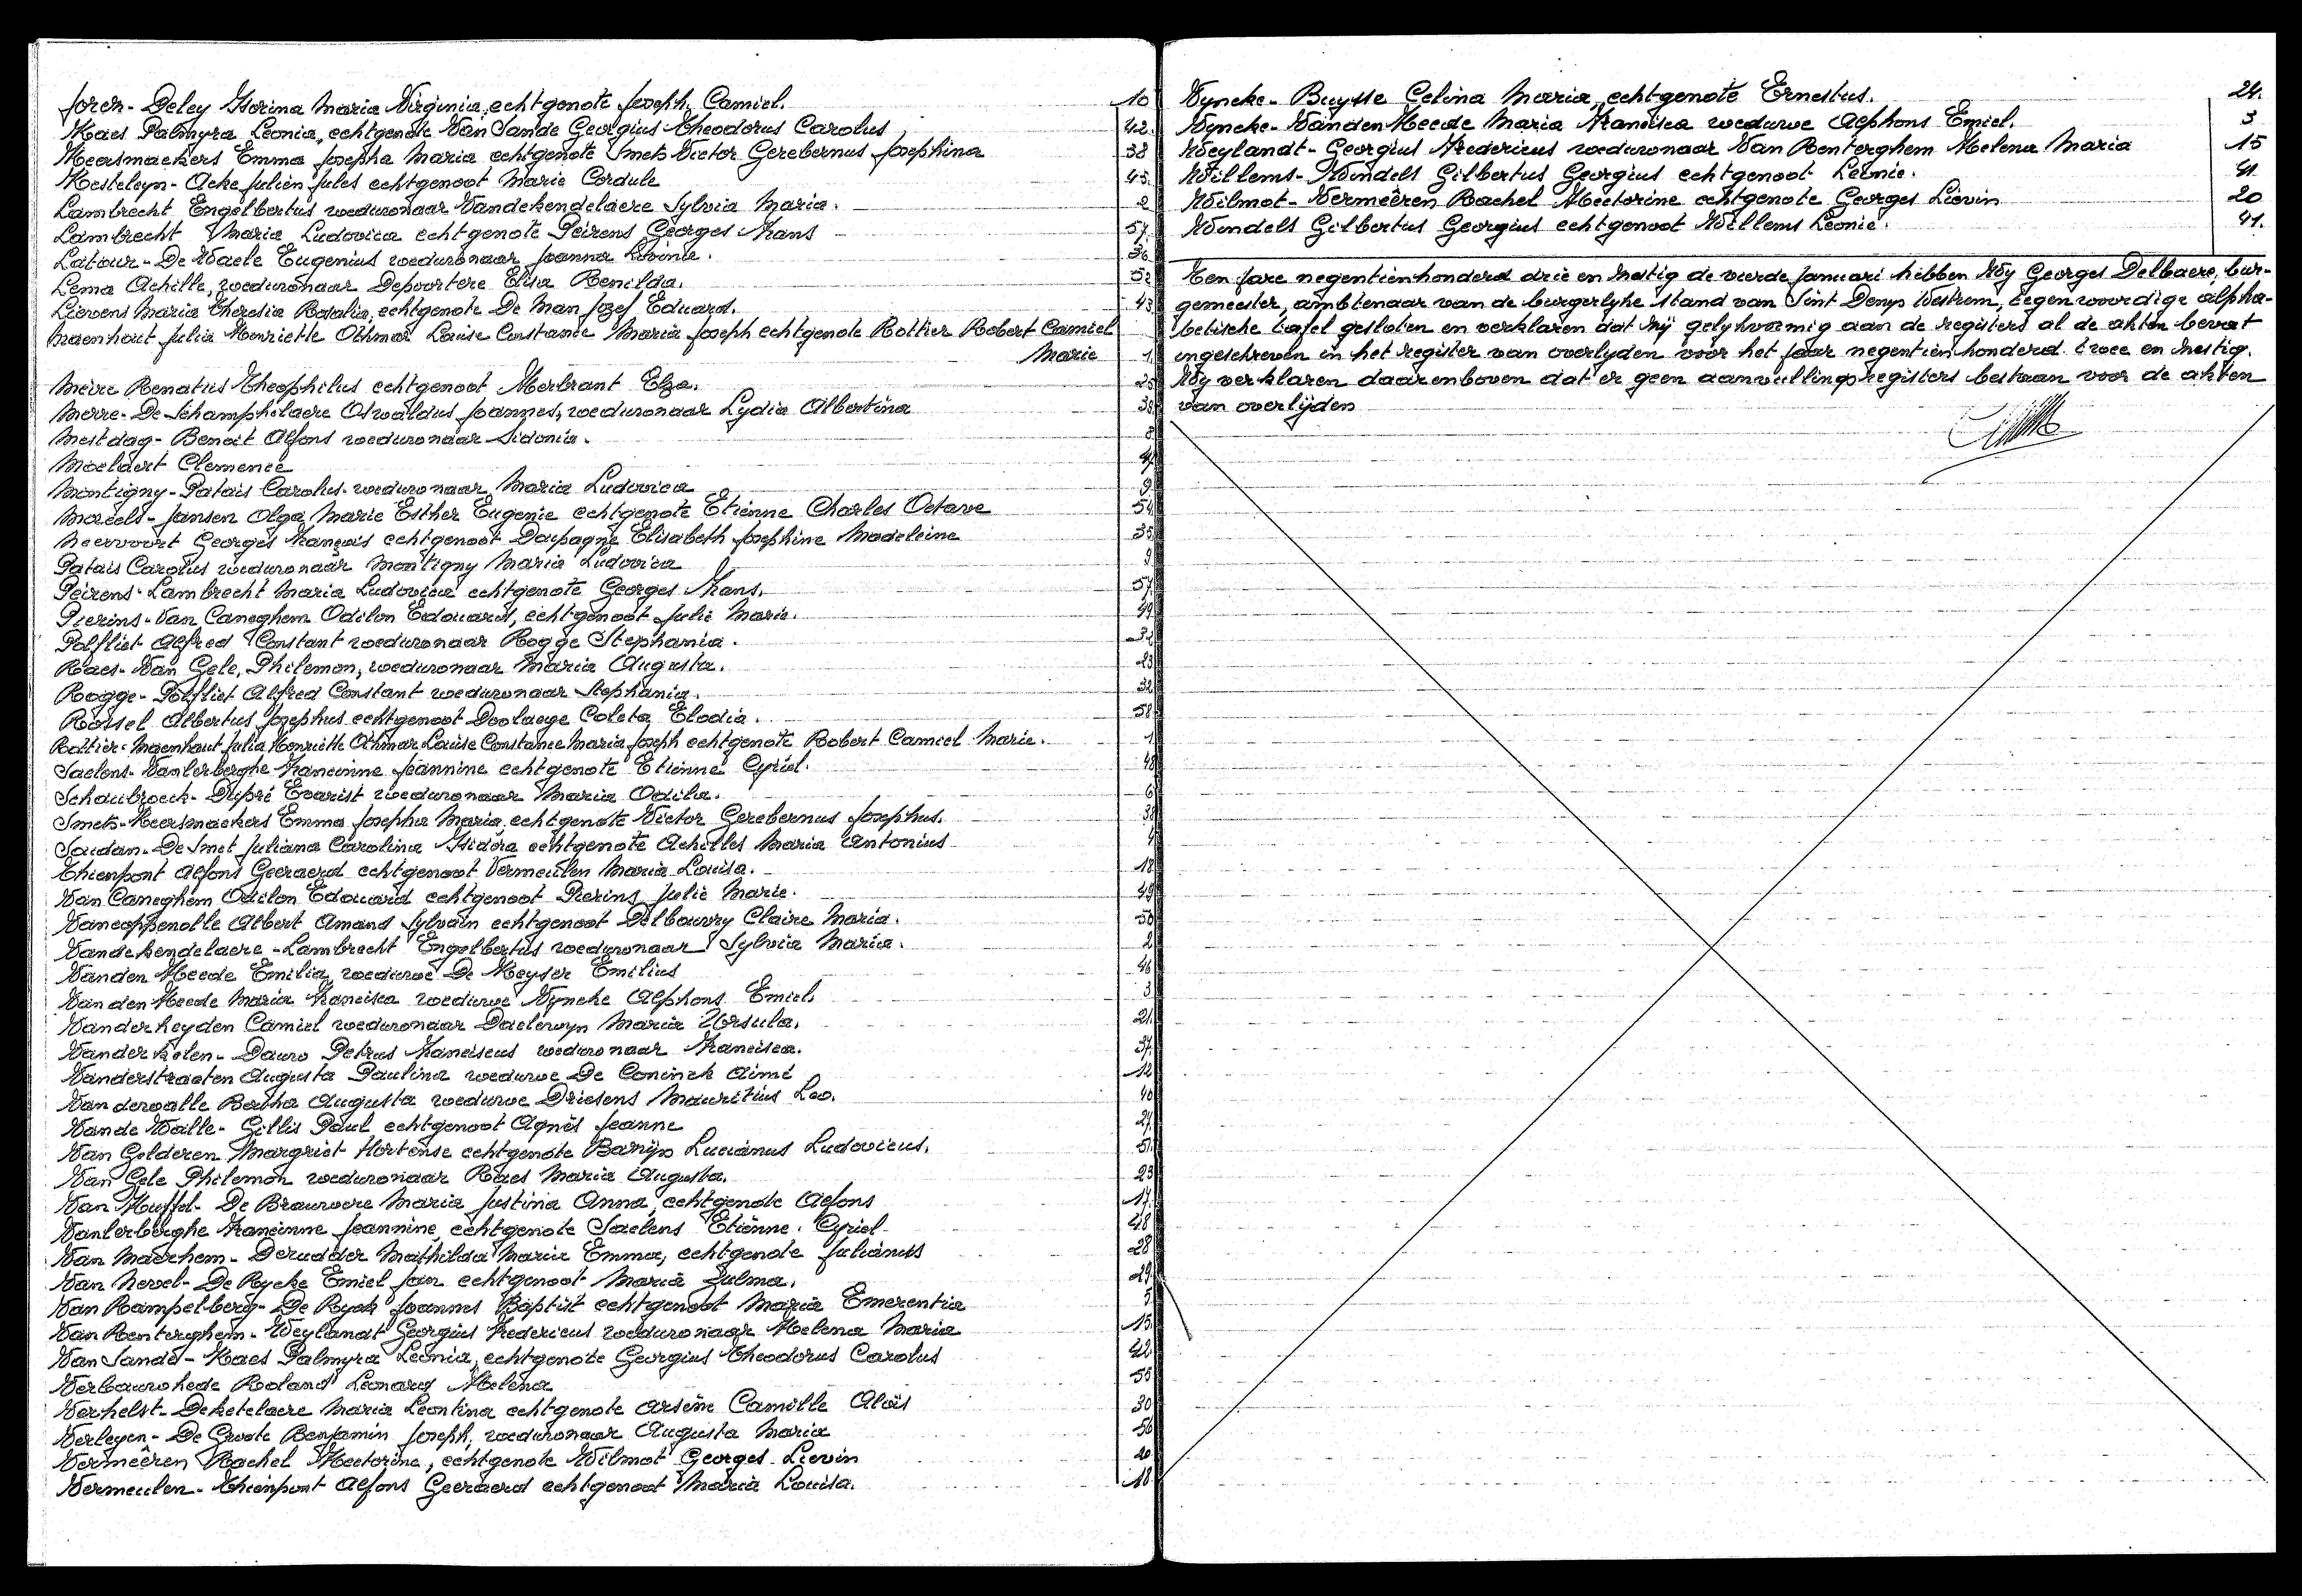 Joren - Deley Florina Maria Virginia, echtgenote Joseph, Camiel. 10
Kaes Palmyra Leonia, echtgenote Van Sande Georgius Theodorus Carolus 42
Keersmaekers Emma Josepha Maria echtgenote Smets Victor Gerebernus Josephina 38
Kesteleyn - Acke Julien Jules echtgenoot Marie Cordule 45.
Lambrecht Engelbertus weduwnaar Vandekendelaere Sylvia Maria. 2
Lambrecht Maria Ludovica echtgenote Peirens Georges Frans 57.
Latour - De Waele Eugenius weduwnaar Joanna Livinie. 36
Lema Achille, weduwnaar Depoortere Elisa Renilda. 52
Lievens Maria Theresia Rosalia, echtgenote De Man Jozef Eduard. 43
Maenhout Julia Henriette Othmar Louise Constance Maria Joseph echtgenote Rottier Robert Camiel
Marie 1
Meire Renatus Theophilus echtgenoot Herbrant Elza. 25
Merre - De Schamphelaere Oswaldus Joannes, weduwnaar Lydia Albertina 39
Mestdag - Benoit Alfons weduwnaar Sidonia. 8
Moelaert Clemence
Montigny - Patais Carolus weduwnaar Maria Ludovica 9
Moreels - Jansen Olga Marie Esther Eugenie echtgenote Etienne Charles Octave 54
Neervoort Georges François echtgenoot Daspagne Elisabeth Josephine Madeleine 35
Patais Carolus weduwnaar Montigny Maria Ludovica 9
Peirens - Lambrecht Maria Ludovica echtgenote Georges Frans. 57.
Pierins - Van Caneghem Odilon Edouard, echtgenoot Julie Marie. 49
Polfliet Alfred Constant weduwnaar Rogge Stephania. 32
Raes - Van Gele, Philemon, weduwnaar Maria Augusta. 23
Rogge - Polfliet Alfred Constant weduwnaar Stephania. 32
Roisel Albertus Josephus echtgenoot Doolaege Coleta Elodia. 58
Rottier - Maenhout Julia Henriette Othmar Louise Constance Maria Joseph echtgenote Robert Camiel Marie. 1
Saelens - Vanlerberghe Francinne Jeannine echtgenote Etienne Cyriel. 48
Schaubroeck - Dupré Evarist weduwnaar Maria Odila. 6
Smets - Keersmaekers Emma Josepha Maria echtgenote Victor Gerebernus Josephus. 38
Soudan - De Smet Juliana Carolina Isidora echtgenote Achilles Maria Antonius 4
Thienpont Alfons Geeraerd echtgenoot Vermeulen Maria Louisa. 18
Van Caneghem Odilon Edouard echtgenoot Pierins Julie Marie. 49
Vancoppenolle Albert Amand Sylvain echtgenoot Delbouvry Claire Maria. 50
Vandekendelaere - Lambrecht Engelbertus weduwnaar Sylvia Maria. 2
Vanden Heede Emilia, weduwe De Keyser Emilius 46
Vanden Heede Maria Francisca weduwe Vyncke Alphons Emiel. 3
Vanderheyden Camiel weduwnaar Daelewyn Maria Ursula. 21.
Vanderkelen - Dauwo Petrus Franciscus weduwnaar Francisca. 37
Vanderstraeten Augusta Paulina weduwe De Coninck Aimé 12
Vanderwalle Bertha Augusta weduwe Driesens Mauritius Leo. 40
Vande Walle - Gillis Paul echtgenoot Agnès Jeanne 27.
Van Gelderen Margriet Hortense echtgenote Barijn Lucianus Ludovicus. 51.
Van Gele Philemon weduwnaar Raes Maria Augusta. 23
Van Huffel - De Brauwere Maria Justina Anna, echtgenote Alfons 17.
Vanlerberghe Francinne Jeannine echtgenote Saelens Etiènne Cyriel 48
Van Maerhem - Derudder Mathilda Maria Emma, echtgenote Julianus 28
Van Nevel - De Rycke Emiel Jan echtgenoot Maria Zulma. 29.
Van Rampelberg - De Ryck Joannes Baptist echtgenoot Maria Emerentia 5
Van Renterghem - Weylandt Georgius Fredericus weduwnaar Helena Maria 15.
Van Sande - Kaes Palmyra Leonia, echtgenote Georgius Theodorus Carolus 42
Verbauwhede Roland Leonard Helena 55
Verhelst - Deketelaere Maria Leontina echtgenote Arsène Camille Aloïs 30
Verleyen - De Groote Benjamin Joseph, weduwnaar Augusta Maria 56
Vermeêren Rachel Hectorine, echtgenote Wilmot Georges Lievin 20
Vermeulen - Thienpont Alfons Geeraerd echtgenoot Maria Louisa. 18
Vyncke - Buysse Celina Maria, echtgenote Ernestus. 24.
Vyncke - Vanden Heede Maria Francisca weduwe Alphons Emiel. 3
Weylandt - Georgius Fredericus weduwnaar Van Renterghem Helena Maria 15
Willems - Windels Gilbertus Georgius echtgenoot Leonie. 41
Wilmot - Vermeêren Rachel Hectorine echtgenote Georges Lievin 20
Windels Gilbertus Georgius echtgenoot Willems Leonie. 41.
Ten jare negentienhonderd drie en zestig de vierde Januari hebben Wy Georges Delbaere, bur-
gemeester, ambtenaar van de burgerlyke stand van Sint Denys Westrem, tegenwoordige alpha-
betische tafel gesloten en verklaren dat zij gelykvormig aan de registers al de akten bevat
ingeschreven in het register van overlyden voor het jaar negentien honderd twee en zestig.
Wy verklaren daarenboven dat er geen aanvullingsregisters bestaan voor de akten
van overlijden